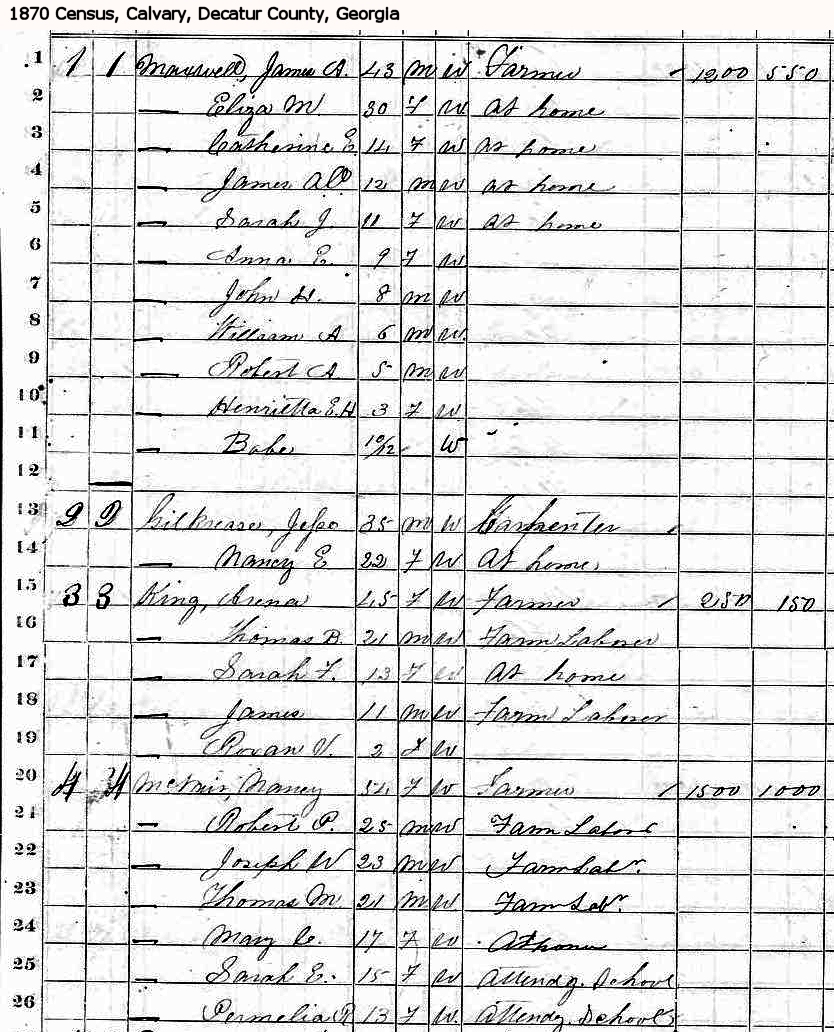 1870 Census, Calvary, Decatur County, Georgia
1 1 1 Maxwell, James A. 43 m W Farmer 1200 550
2 — Eliza M. 30 F W At home
3 — Catherine E. 14 F W At home
4 — James 12 m W at home
5 — Sarah J. 11 F W At home
6 — Anna E. 9 F W
7 — John H. 8 m W
8 — William A 6 m W
9 — Robert A 5 m W
10 — Henrietta E. H 3 F W
11 — Babe 10/12 W
12
13 2 2 Gilkrease, 35 m W Carpenter
14 — Nancy E 22 F W At home
15 3 3 King, Arena 45 F W Farmer 250 150
16 — Thomas B. 21 m W Farm Laborer
17 — Sarah F. 13 F W At home
18 — James 11 m W Farm Laborer
19 — V. 2 F W
20 4 4 McNair, Nancy 54 F W Farmer 1500 1000
21 — Robert P. 25 m W Farm Labor
22 — Joseph W 23 m W Farm Labr.
23 — Thomas M. 21 m W Farm Labr.
24 — Mary C. 17 F W At home
25 — Sarah E. 15 F W Attendg. School
26 — Permelia R 13 F W Attendg. School